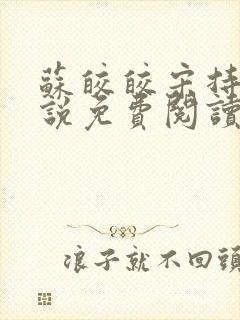 蘇皎皎宋持
說免費閱讀
浪子就不回頭